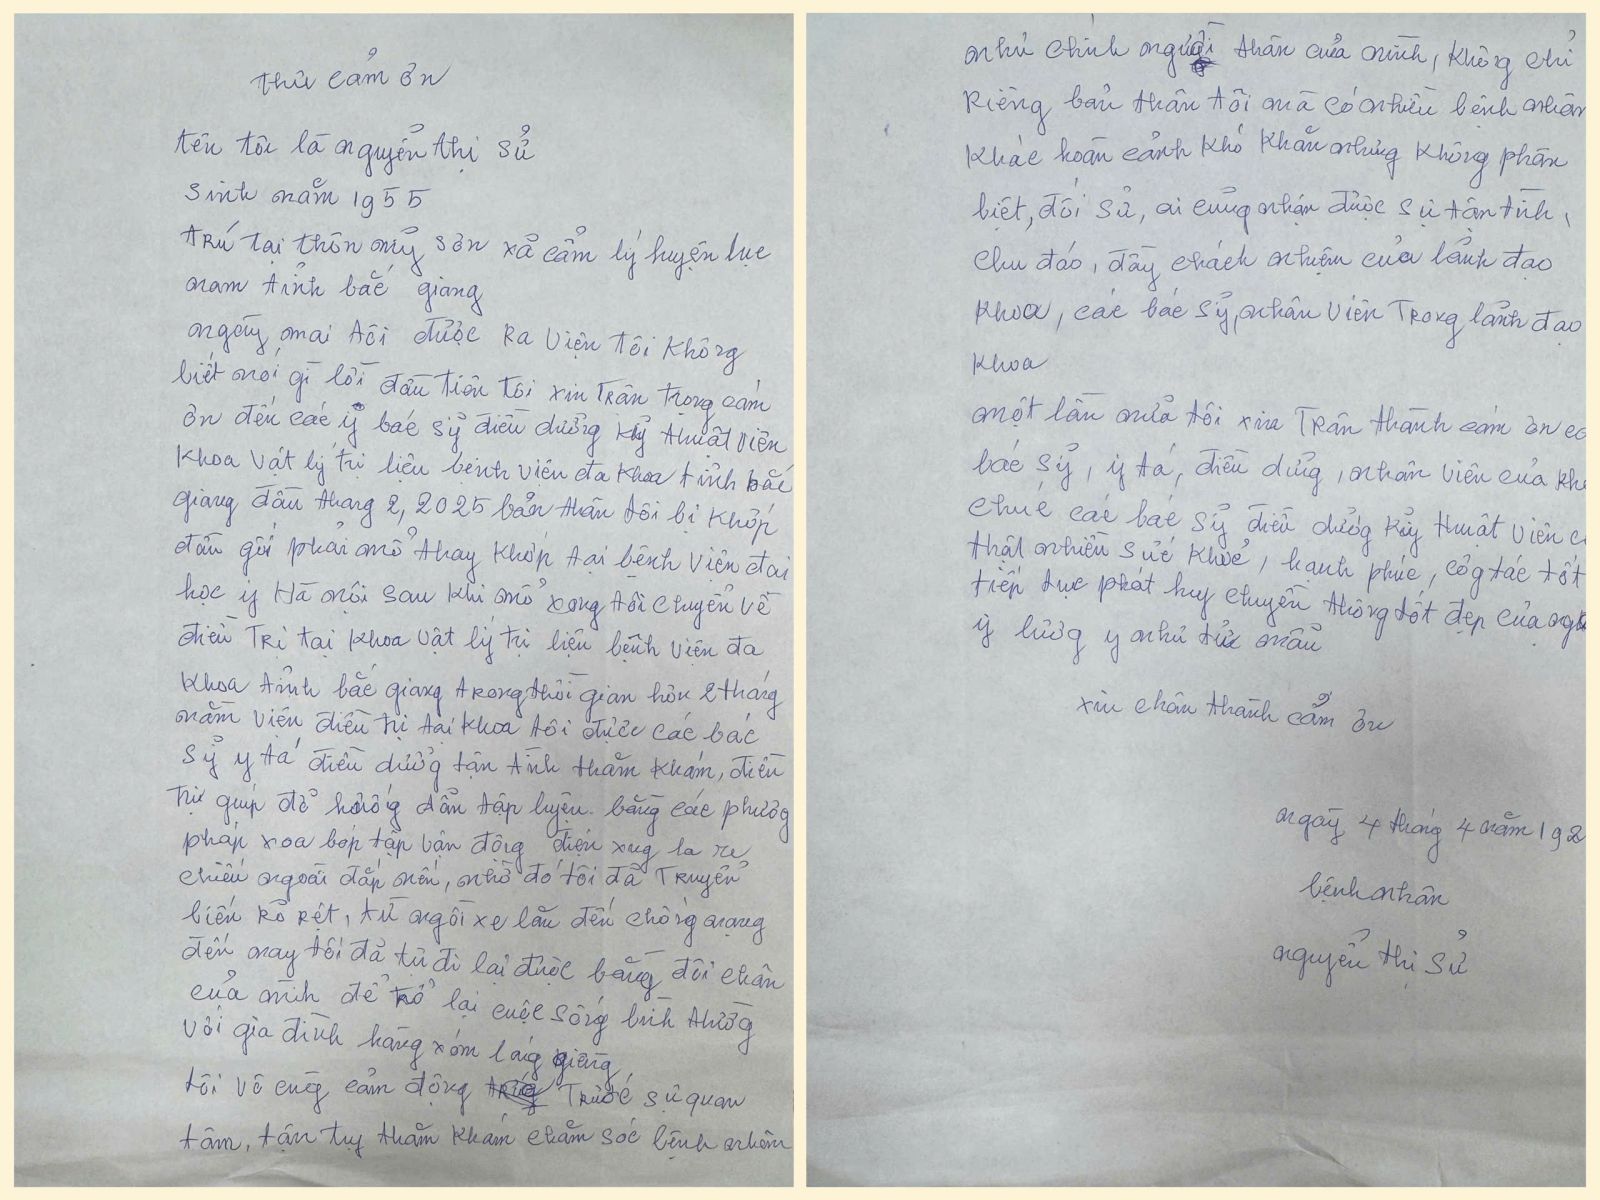 thư cảm ơn
tên tôi là nguyển thị sử
sinh năm 1955
trú tại thôn mỹ sơn xã cẩm lý huyện lục
nam tỉnh bắc giang
ngày mai tôi được ra viện tôi không
biết nói gì lời đầu tiên tôi xin trân trọng cảm
ơn đến các y bác sỷ điều dưởng kỷ thuật viên
khoa vật lý trị liệu bệnh viện đa khoa tỉnh bắc
giang đầu tháng 2, 2025 bản thân tôi bị khớp
đầu gối phải mổ thay khớp tại bệnh viện đai
học y Hà nội sau khi mổ xong tôi chuyển về
điều trị tại khoa vật lý trị liệu bệnh viện đa
khoa tỉnh bắc giang trong thời gian hơn 2 tháng
nằm viện điều trị tại khoa tôi được các bác
sỷ y tá điều dưởng tận tình thăm khám, điều
trị giúp đở hướng dẩn tập luyện bằng các phương
pháp xoa bóp tập vận động điện xung la re
chiếu ngoài đắp nến, nhờ đó tôi đã truyển
biến rỏ rệt, từ ngồi xe lăn đến chống nạng
đến nay tôi đã tự đi lại được bằng đôi chân
của mình để trở lại cuộc sống bình thường
với gia đình hàng xóm láng giềng
tôi vô cùng cảm động trước sự quan
tâm, tận tụy thăm khám chăm sóc bệnh nhân
như chính người thân của mình, không chỉ
riêng bản thân tôi mà có nhiều bệnh nhân
khác hoàn cảnh khó khăn nhưng không phân
biệt, đối sử, ai cũng nhận được sự tận tình,
chu đáo, đầy chách nhiệm của lảnh đạo
khoa, các bác sỷ, nhân viên trong lảnh đạo
khoa
một lần nửa tôi xin trân thành cám ơn
bác sỷ, y tá, điều dưởng, nhân viên của
chúc các bác sỷ điều dưởng kỷ thuật viên
thật nhiều sức khỏe, hạnh phúc, côg tác tốt
tiếp tục phát huy chuyền thống tốt đẹp của
y lương y như từ mẩu
xin chân thành cảm ơn
ngày 4 tháng 4 năm 192
bệnh nhân
nguyển thị sử